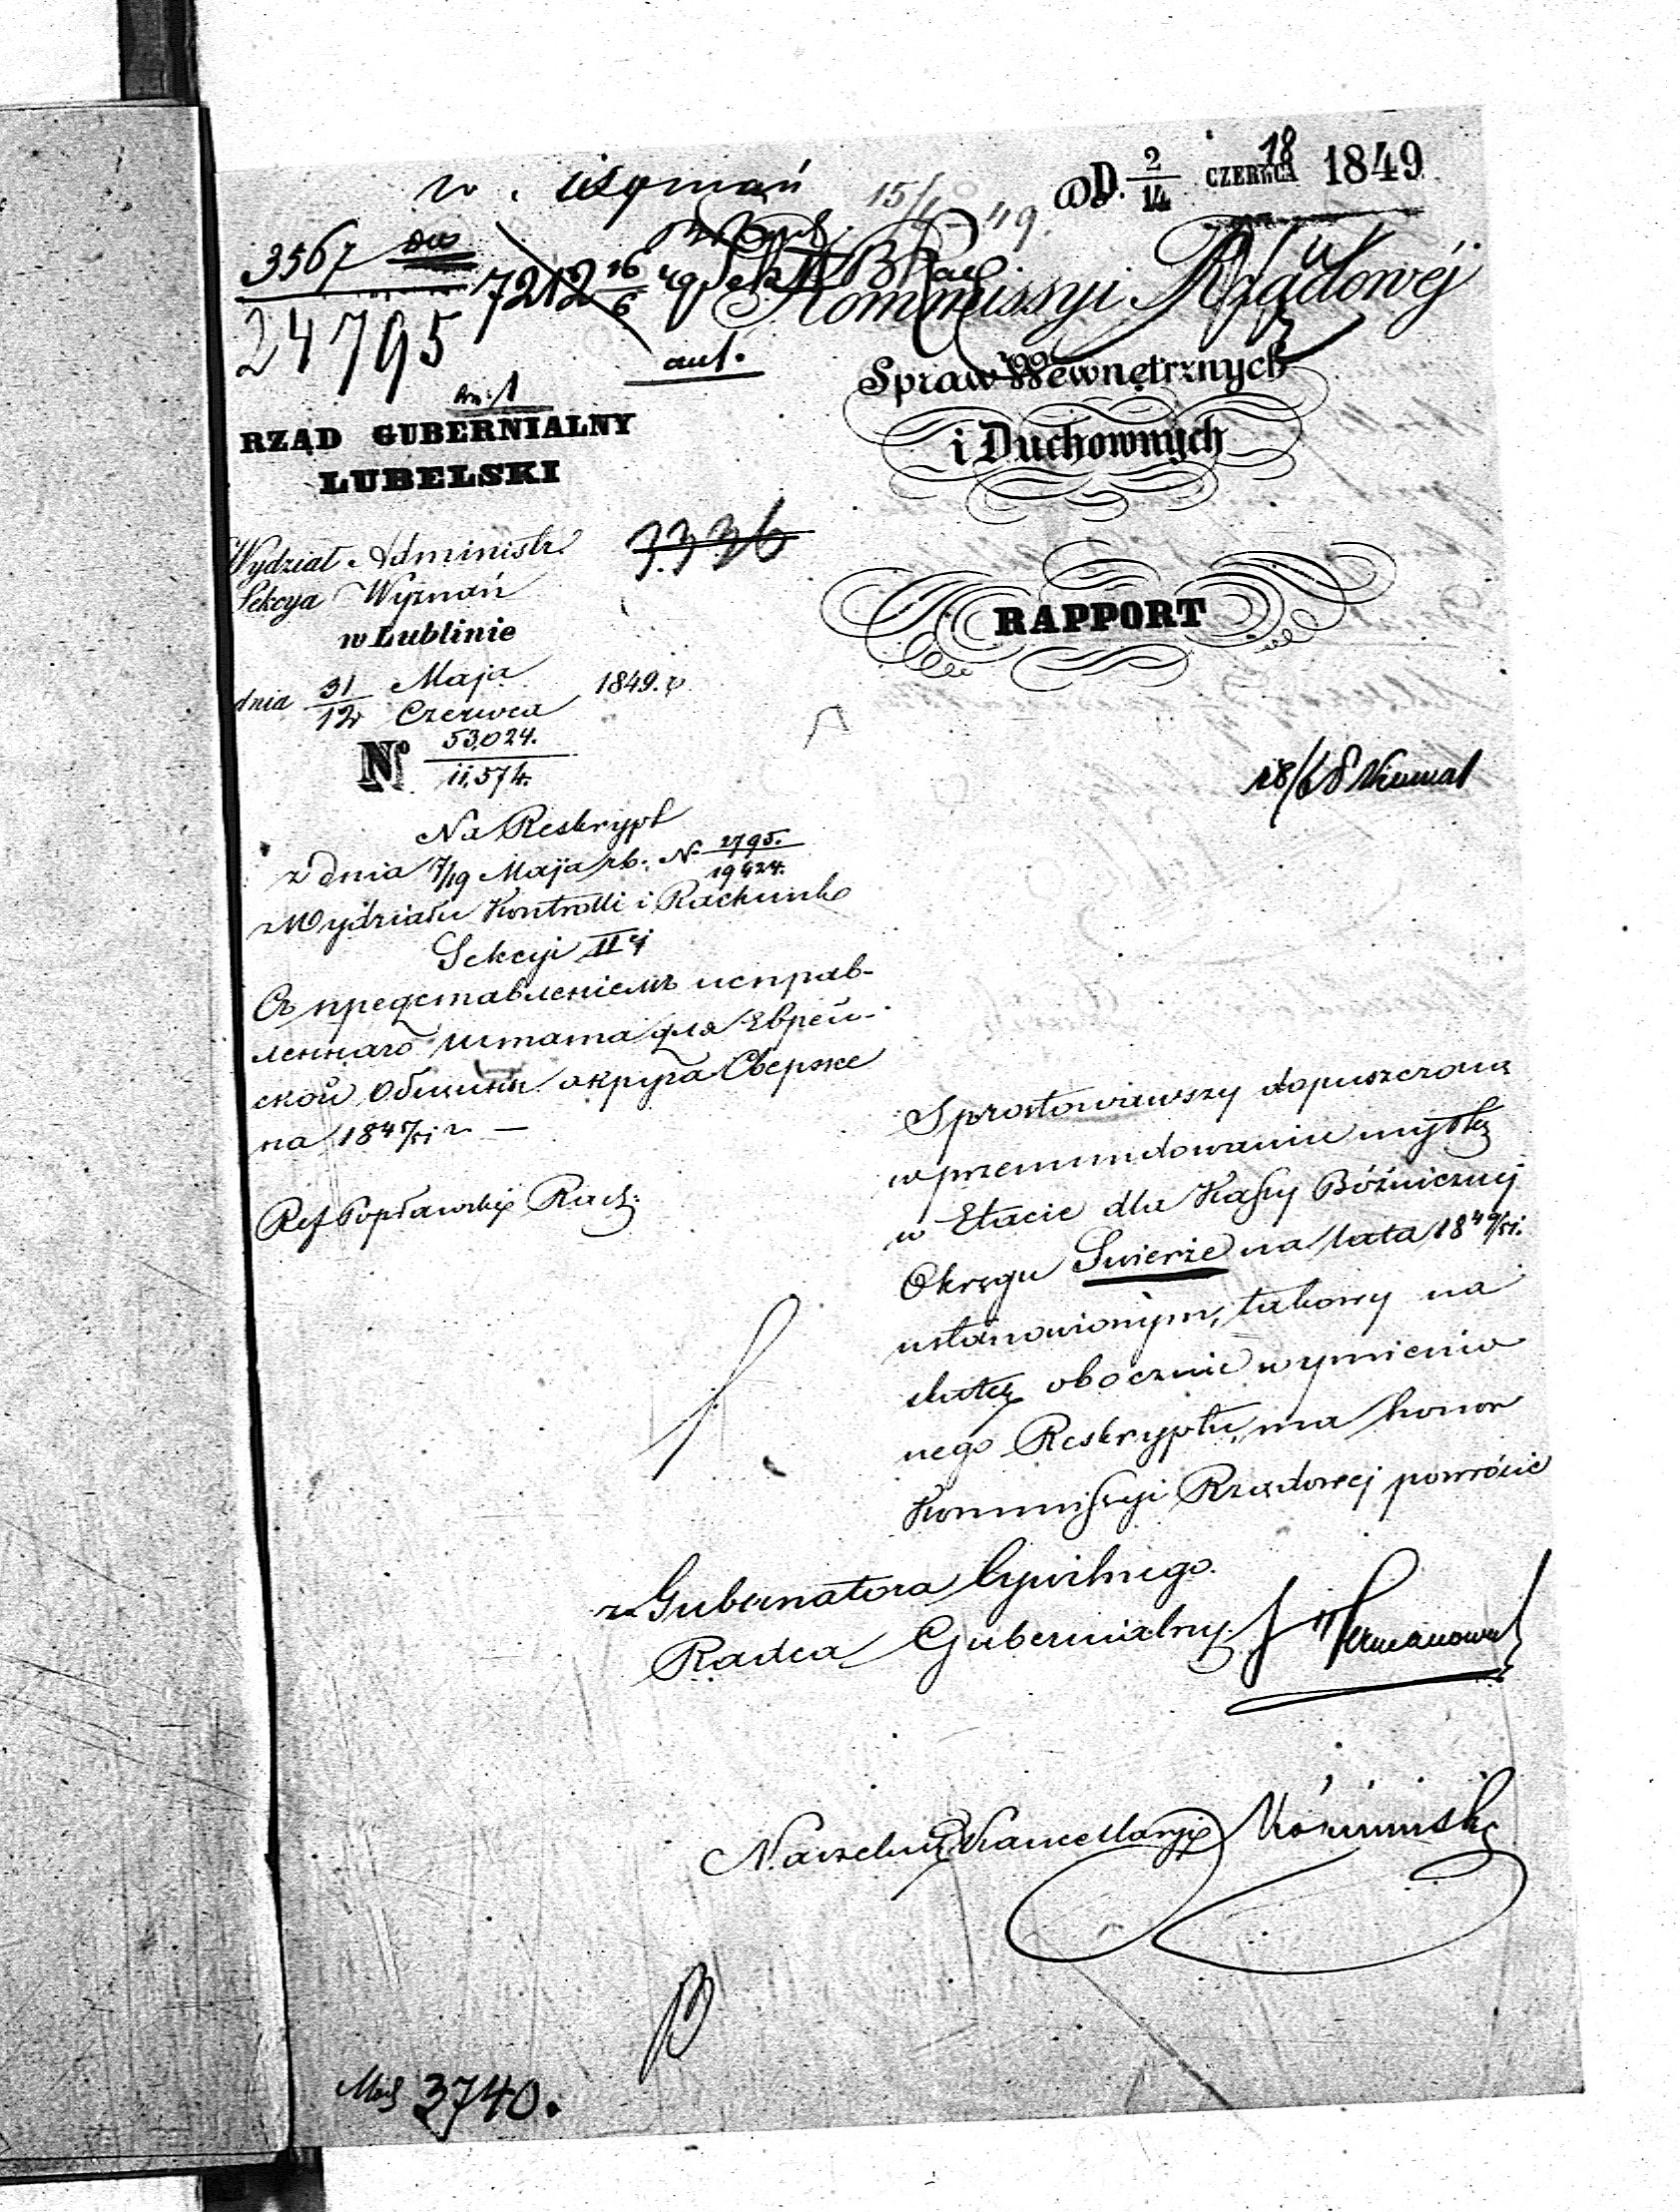 w. wyznań
15/6 49.
OD. 2/14 CZERWCA 1849
18
3567
24795
7212 16/6
Kommissyi Rządowéj
Spraw Wewnętrznych
i Duchownych
RAPPORT
RZĄD GUBERNIALNY
LUBELSKI
Wydział Administr
Sekcya Wyznań
3336
w Lublinie
dnia 31/12 Maja/Czerwca 1849. r.
No 53,024./11,574.
Na Reskrypt
z dnia 7/19 Maja rb. N 2795./19624.
z Wydziału Kontrolli i Rachunko
Sekcyi II
Съ представленіемъ исправ-
леннаго штата для Еврей-
ской Общины округа Сверже
на 1849/51 г. —
Ref Popławski Rach.
18/6
Sprostowawszy dopuszczoną
w przemundowaniu myłkę
w Etacie dla Kassy Bóżnicznej
Okręgu Świerże na lata 1849/51.
ustanowionym, takowy na
skutek obocznie wymienio
nego Reskryptu, ma honor
Kommissyi Rządowej powrócić
za Gubernatora Cywilnego.
Radca Gubernialny.
Naczelnik Kancellaryi
3740.